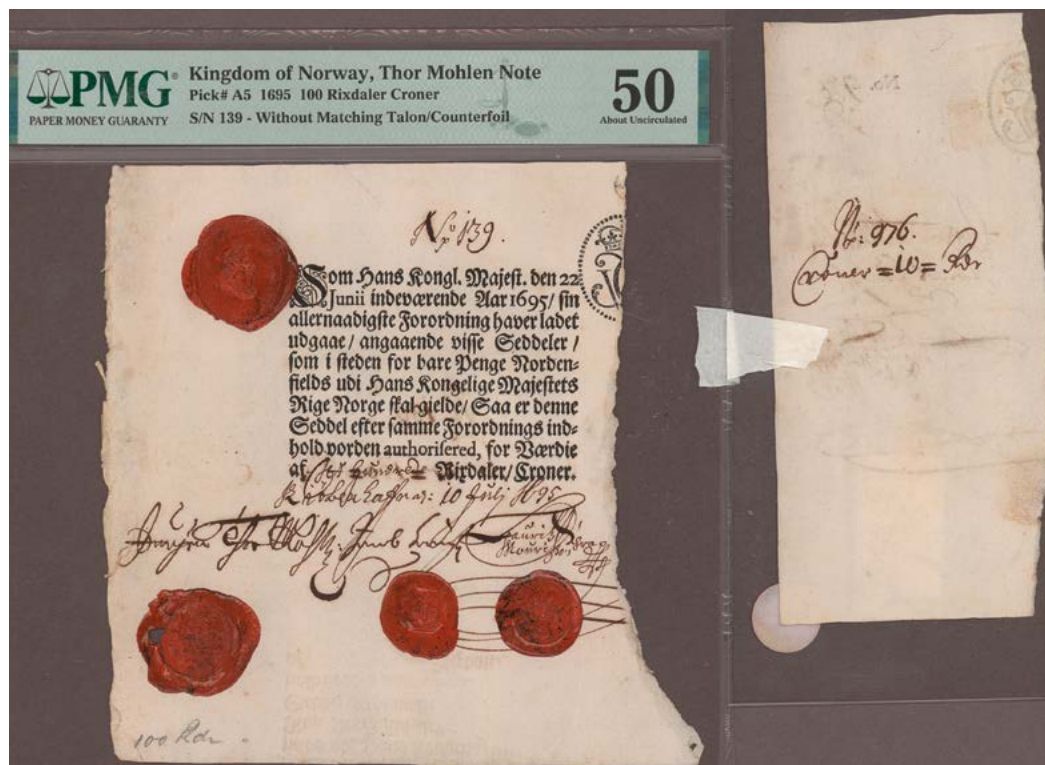 PMG
PAPER MONEY GUARANTY
Kingdom of Norway, Thor Mohlen Note
Pick# A5 1695 100 Rixdaler Croner
S/N 139 - Without Matching Talon/Counterfoil
50
About Uncirculated
No 139.
Som Hans Kongl. Majest. den 22
Junii indeværende Aar 1695/ sin
allernaadigste Forordning haver ladet
udgaae/ angaaende visse Seddeler /
som i steden for bare Penge Norden-
fields udi Hans Kongelige Majestets
Rige Norge skal gielde/ Saa er denne
Seddel efter samme Forordnings ind-
hold vorden authorisered, for Værdie
af hundrede Rixdaler/ Croner.
10 Julj 1695
Thor
Lauritz
Mouritz
100 Rdr
No: 976.
Croner =10= Rdr